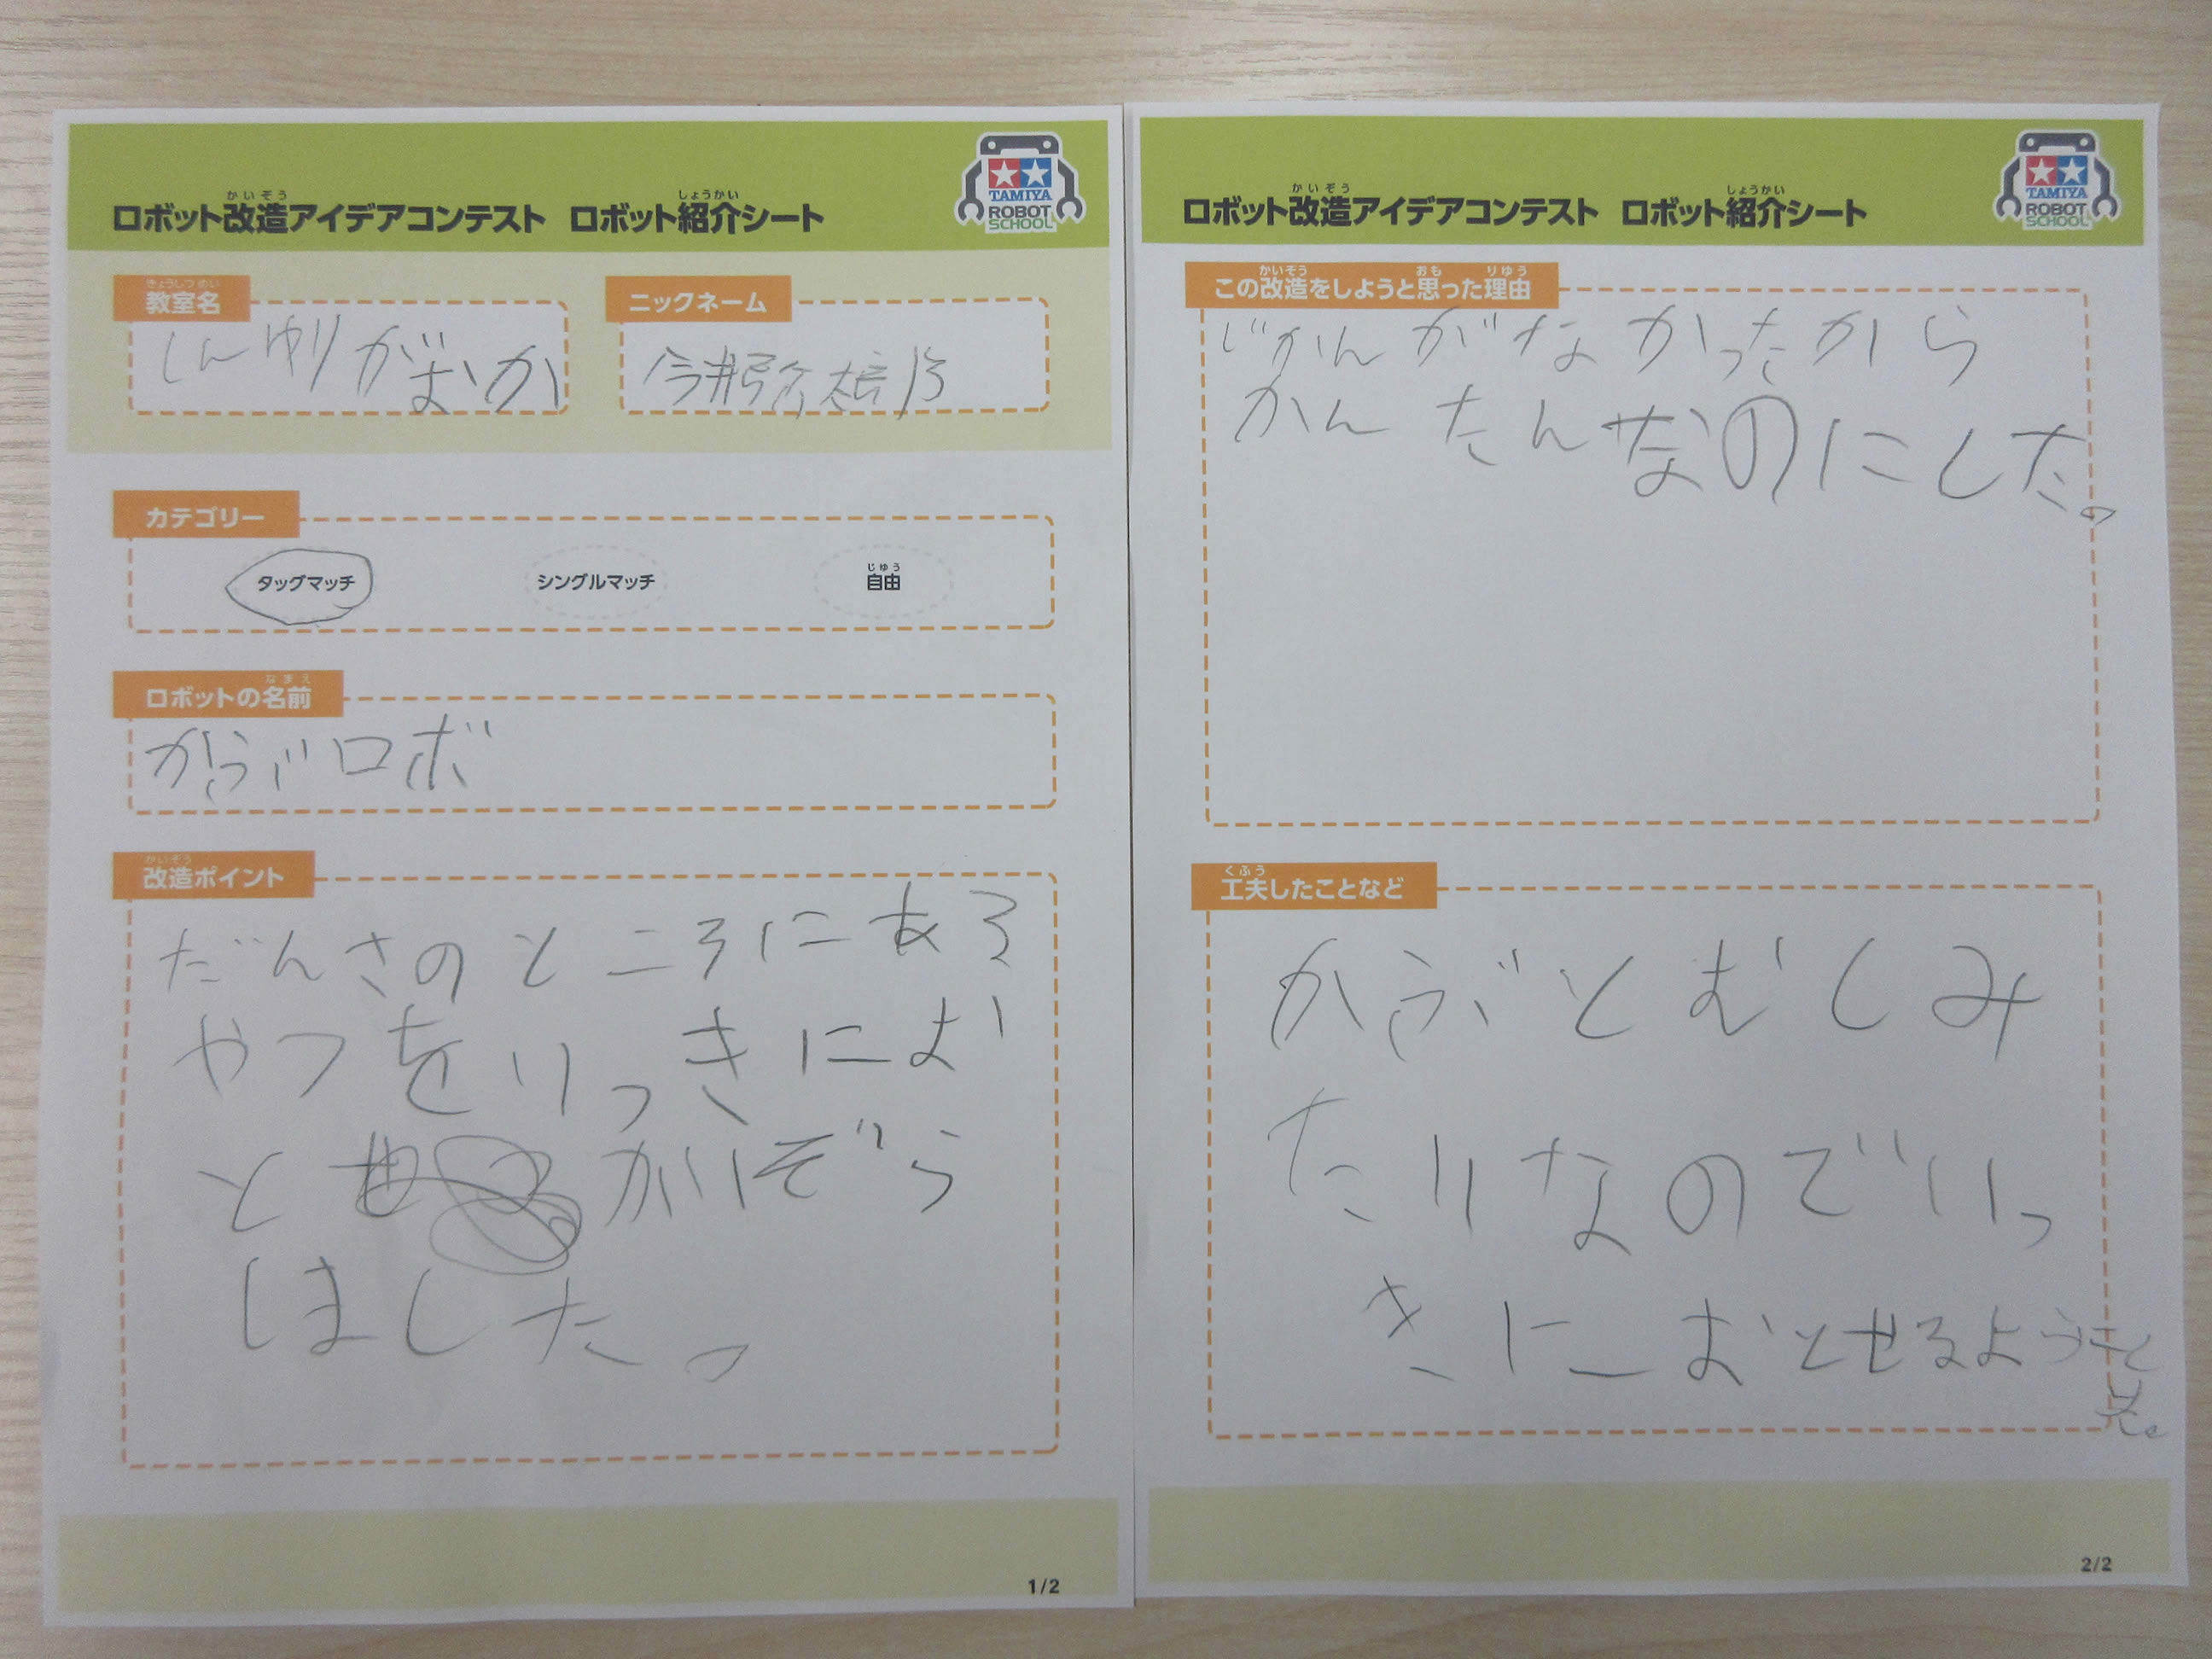 かいぞう しょうかい
ロボット改造アイデアコンテスト ロボット紹介シート
TAMIYA
ROBOT
SCHOOL
きょうしつ めい
教室名
しんゆりがおか
ニックネーム
カテゴリー
タッグマッチ シングルマッチ
じゆう
自由
なまえ
ロボットの名前
かぶロボ
かいぞう
改造ポイント
だんさのところにある
やつをいっきにお
とせ かいぞう
しました。
1/2
かいぞう しょうかい
ロボット改造アイデアコンテスト ロボット紹介シート
TAMIYA
ROBOT
SCHOOL
かいぞう おも りゆう
この改造をしようと思った理由
じかんがなかったから
かんたんなのにした。
くふう
工夫したことなど
かぶとむしみ
たいなのでいっ
きにおとせるようにし
た。
2/2